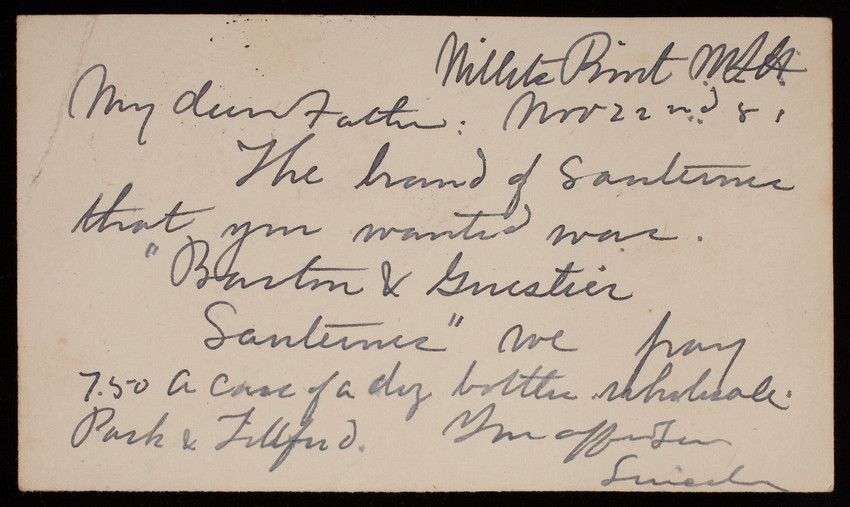 Willets Point N.Y.H.
My dear Father: Nov 22nd 81
The brand of Sauternes
that you wanted was.
"Barton & Guestier
Sauternes" we pay
7.50 a case of a doz bottles wholesale.
Park & Tillford. Your aff. Son
Lincoln